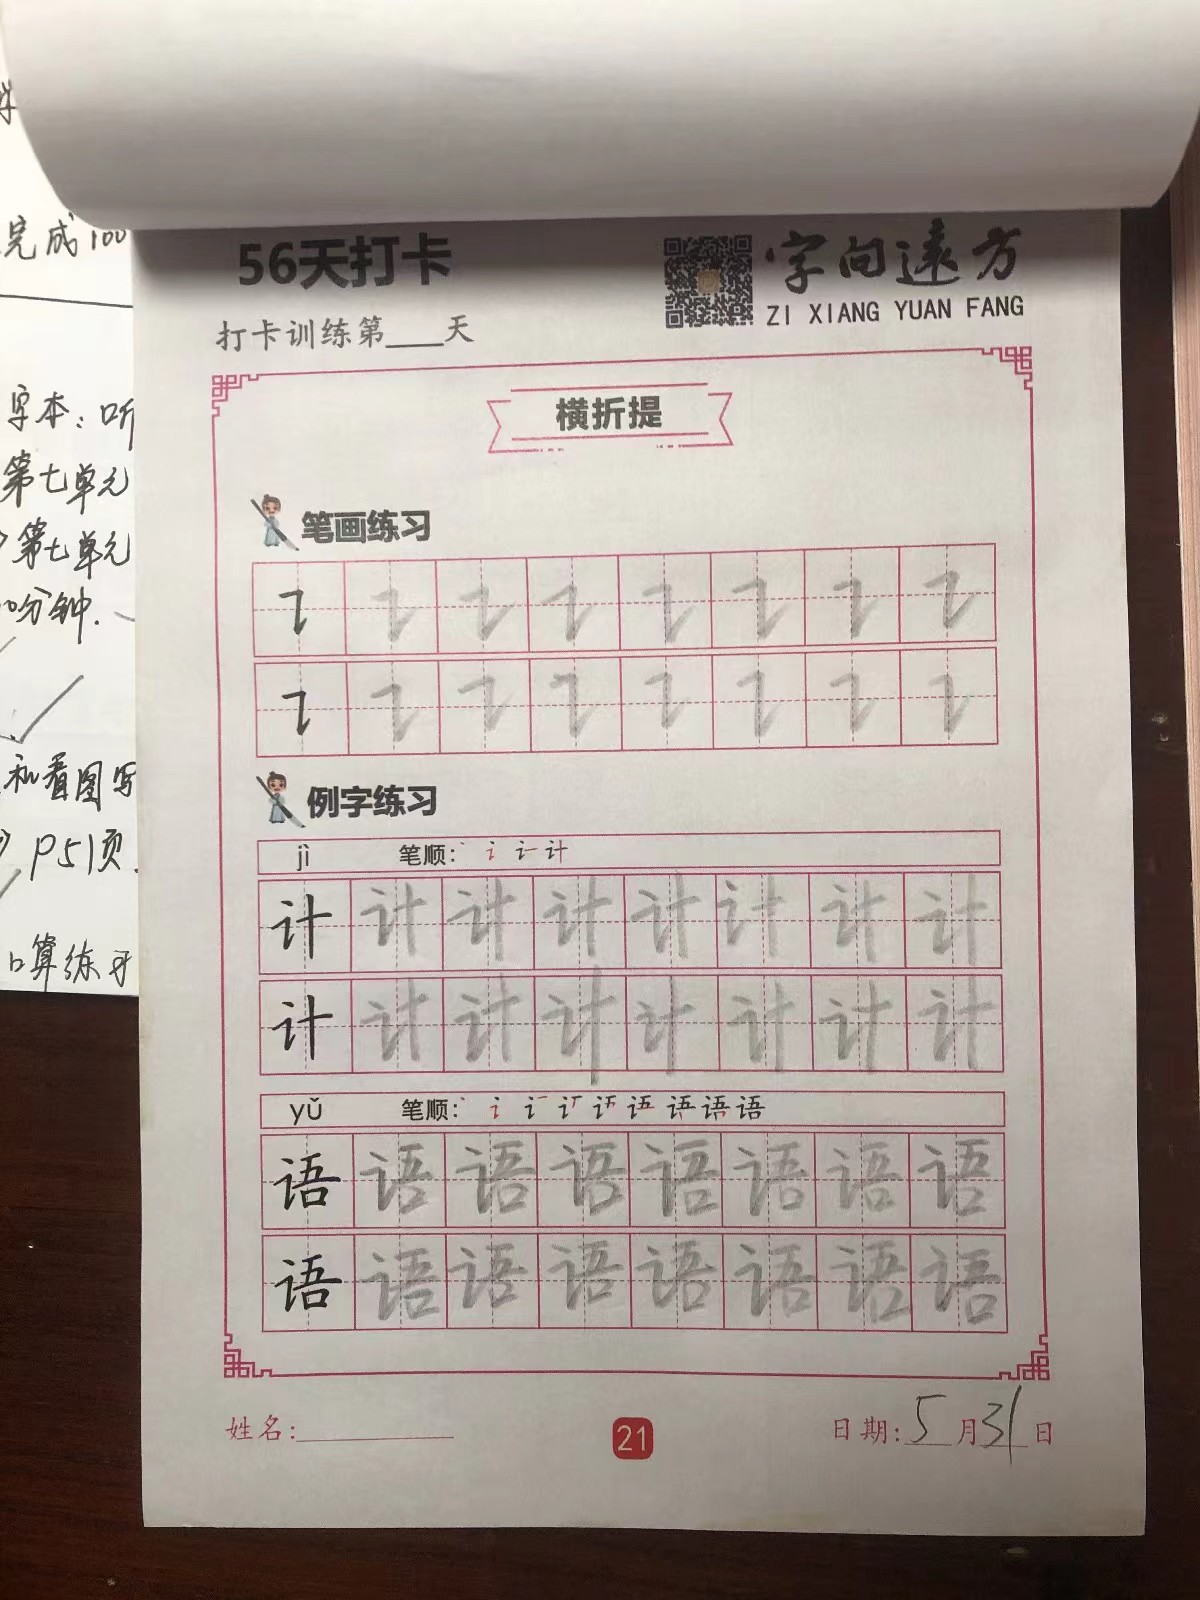 完成100
字本：听
第七单元
第七单元
分钟.
和看图写
P51页.
口算练习
56天打卡
字向远方
ZI XIANG YUAN FANG
打卡训练第____天
横折提
笔画练习
㇊ ㇊ ㇊ ㇊ ㇊ ㇊ ㇊ ㇊
㇊ ㇊ ㇊ ㇊ ㇊ ㇊ ㇊ ㇊
例字练习
jì 笔顺： 丶 讠 计
计 计 计 计 计 计 计 计
计 计 计 计 计 计 计 计
yǔ 笔顺：
语 语 语 语 语 语 语 语
语 语 语 语 语 语 语 语
姓名：
21
日期：5月31日